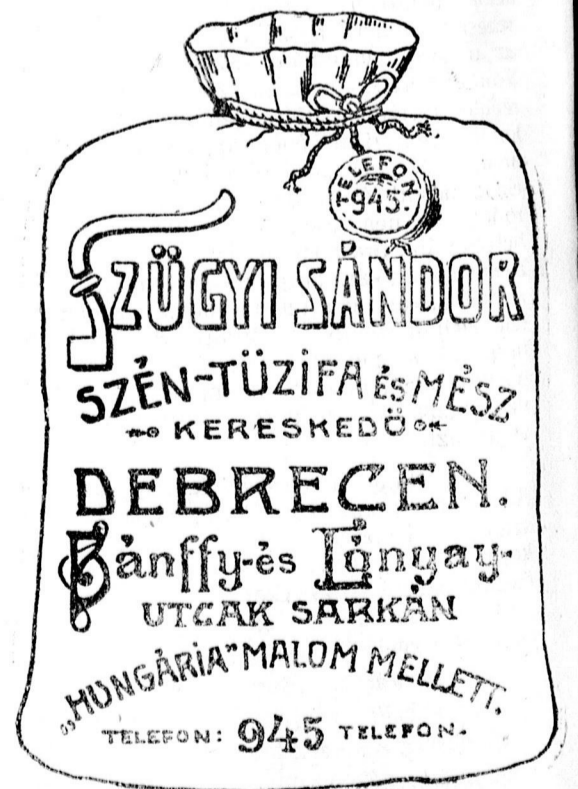 TELEFON
945.
SZÜGYI SÁNDOR
SZÉN-TÜZIFA és MÉSZ
KERESKEDŐ
DEBRECEN.
Bánffy-és Lónyay-
UTCAK SARKÁN
„HUNGÁRIA” MALOM MELLETT.
TELEFON: 945 TELEFON.